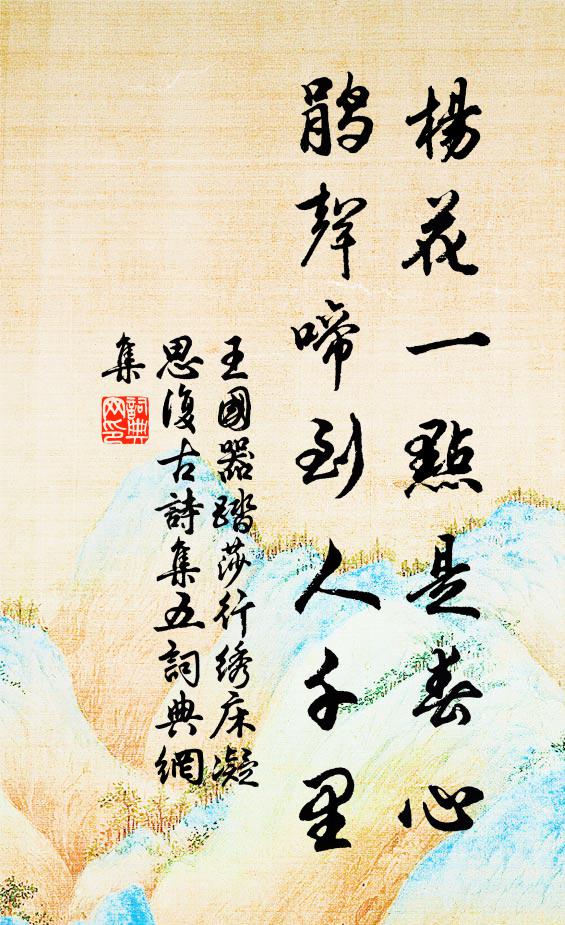 楊花一點是春心
鵑聲啼到人千里
王國器踏莎行綉床凝
思復古詩集五詞典網
集
詞典
网印